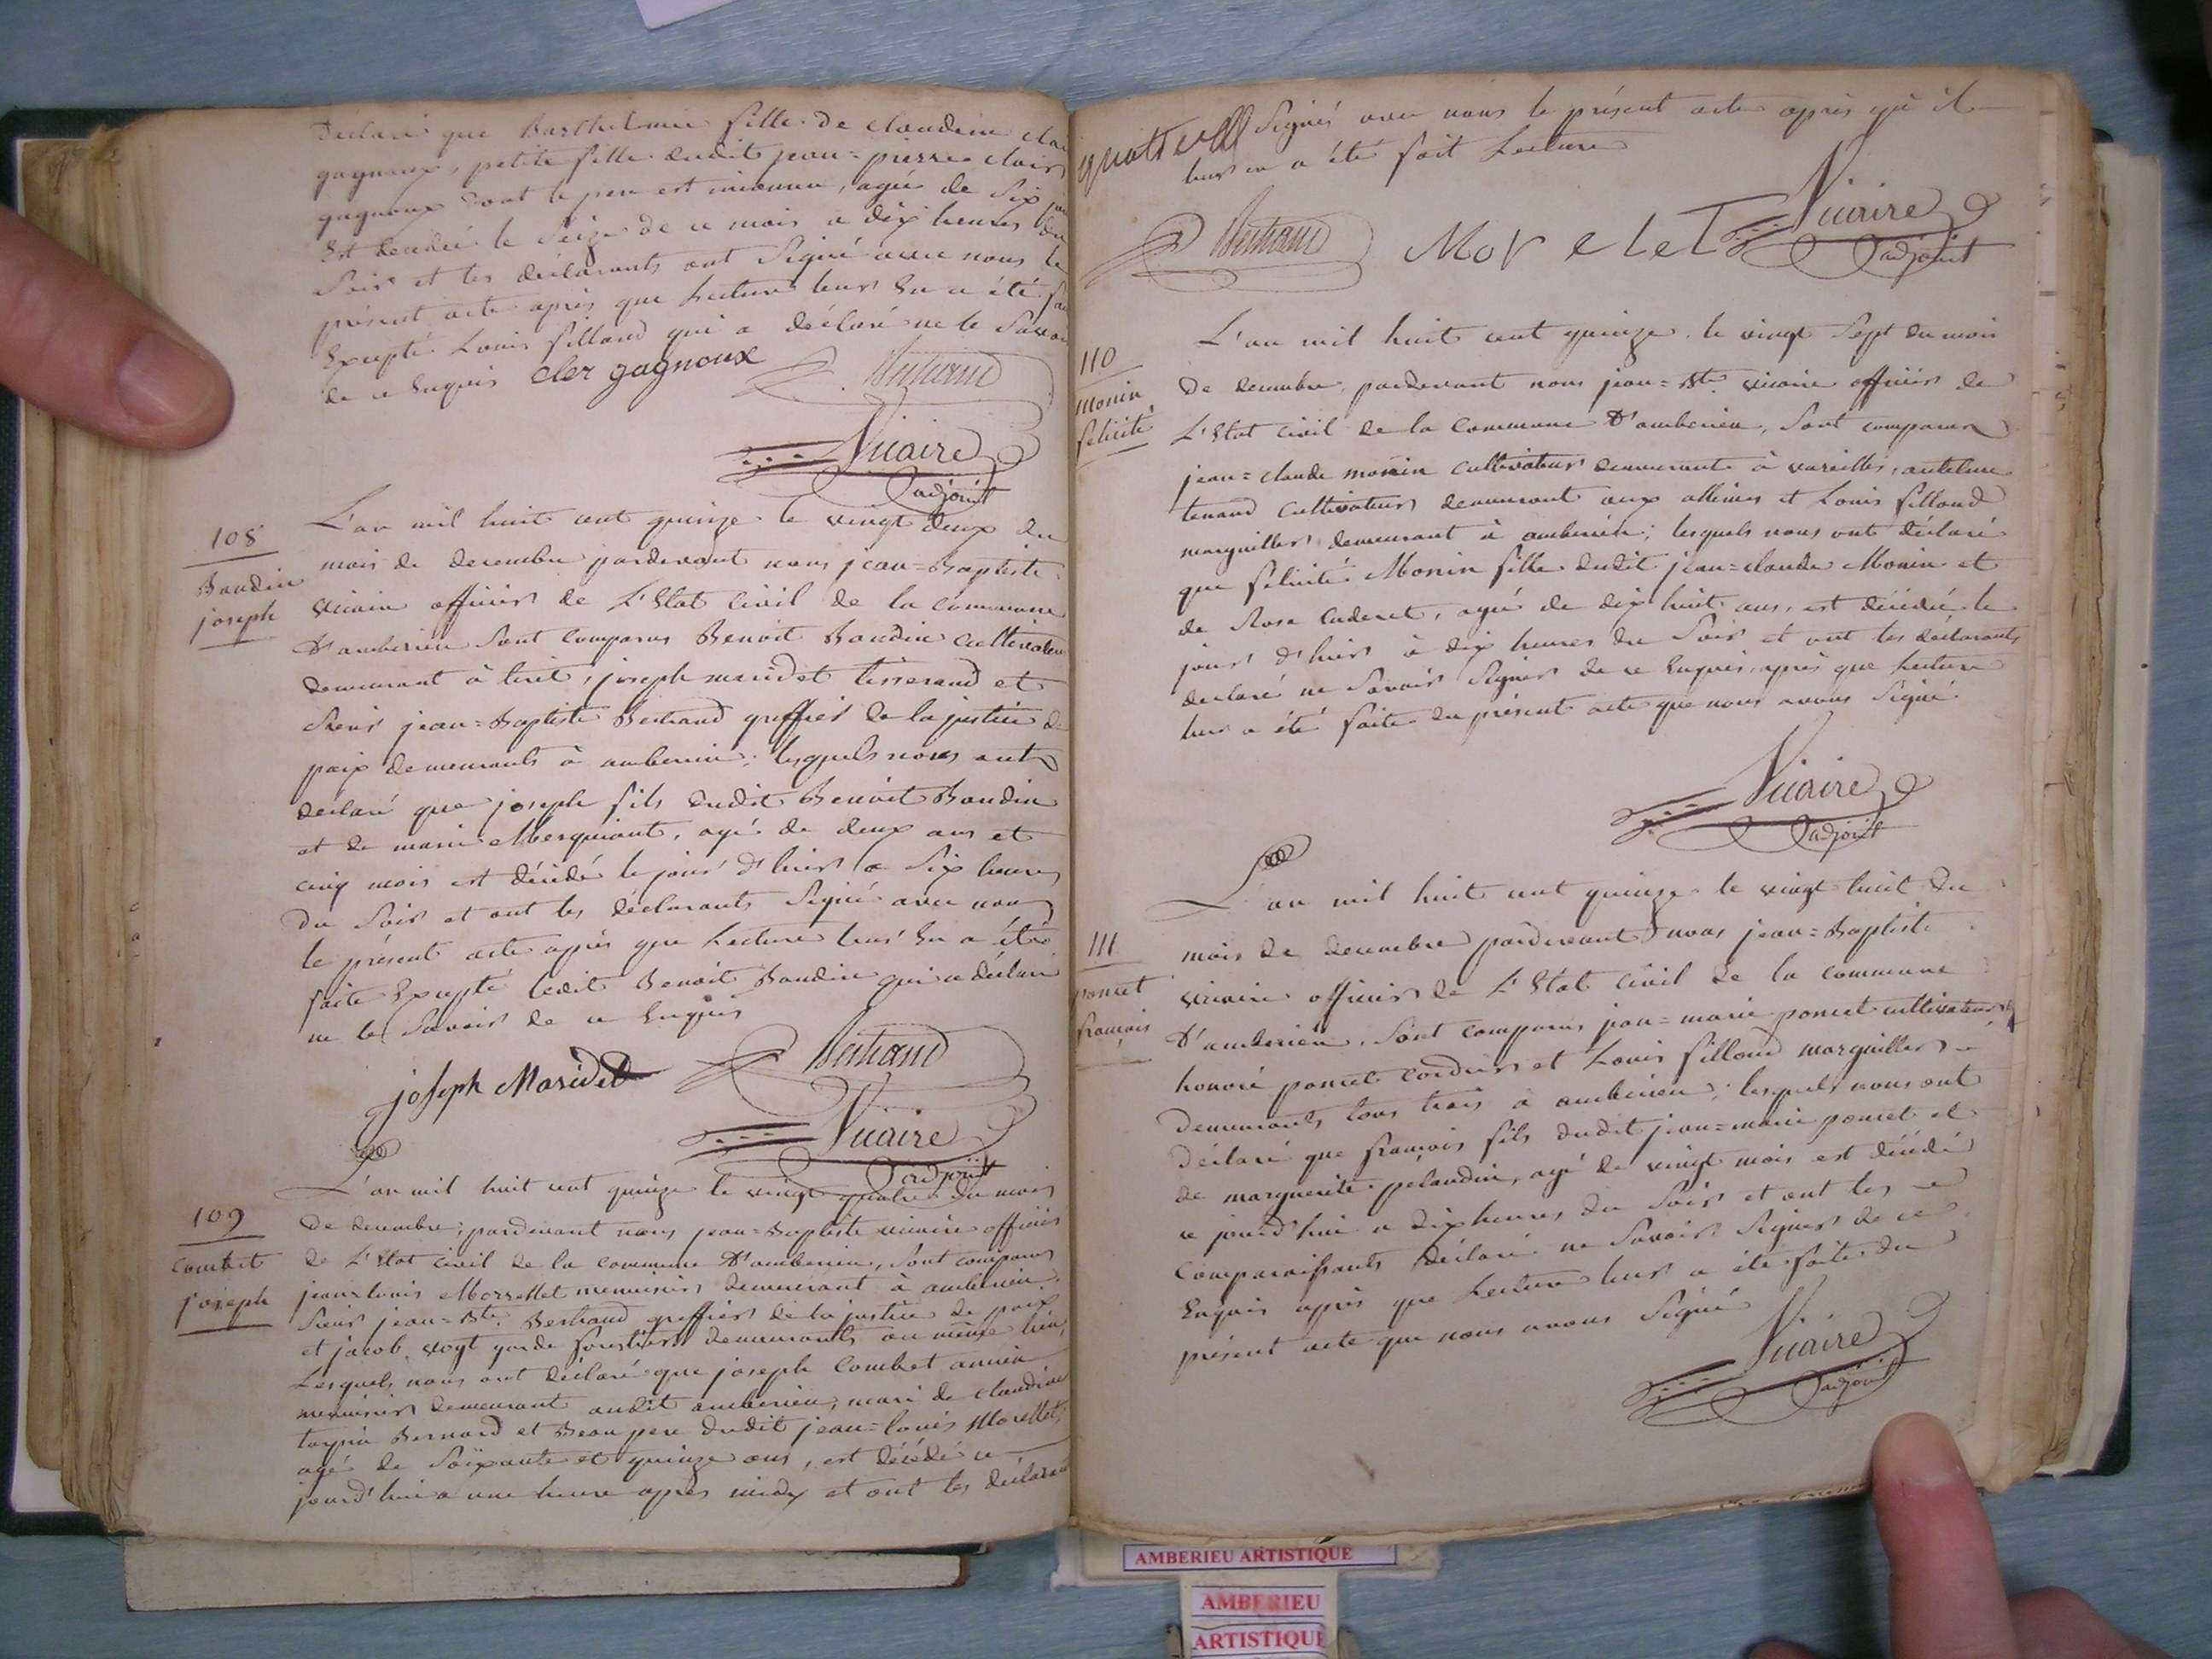 déclaré que Barthelmie fille de claudine
gagneux, petite fille dudit jean=pierre clair
gagnoux dont le pere est inconnu, agée de six
est decedée le seize de ce mois a dix heures du
soir et les déclarants ont signé avec nous le
présent acte après que lecture leur En a été
Excepté Louis filland qui a déclaré ne le savoir
de ce Enquis cler gagnoux Bertrand
Vicaire
adjoint
108
Baudin
joseph
L'an mil huit cent quinze le vingt deux du
mois de decembre pardevant nous jean=Baptiste
vicaire officier de L'Etat Civil de la Commune
D'amberieu sont comparus Benoit Baudin cultivateur
demeurant à tiret, joseph maridet tisserand et
sieur jean=Baptiste Bertrand greffier de la justice de
paix demeurants à amberieu; lesquels nous ont
déclaré que joseph fils dudit Benoit Baudin
et de marie Merquiant, agé de deux ans et
cinq mois est décédé le jour d'hier a six heures
du soir et ont les déclarants signé avec nous
le présent acte après que Lecture leur En a été
faite Excepté ledit Benoit Baudin qui a déclaré
ne le savoir de ce Enquis
joseph Maridet Bertrand
Vicaire
adjoint
109
combet
joseph
L'an mil huit cent quinze le vingt quatre du mois
de decembre; pardevant nous jean=Baptiste vicaire officier
de L'Etat civil de la commune D'amberieu, sont comparus
jean=louis Morrellet menuisier demeurant à amberieu,
sieur jean=Bte Bertrand greffier de la justice de paix
et jacob vogt garde forestier demeurants au même lieu,
Lesquels nous ont déclaré que joseph Combet ancien
menuisier demeurant audit amberieu, mari de claudine
Bernard et Beau pere dudit jean=louis Morellet,
agé de soixante et quinze ans, est décédé ce
jourd'hui a une heure après midy et ont les déclarants
signés avec nous le présent acte après qu'il
leur en a été fait Lecture
Bertrand MoreleT Vicaire
adjoint
110
Monin
felicité
L'an mil huit cent quinze le vingt sept du mois
de decembre, pardevant nous jean=Bte vicaire officier de
L'Etat civil de la Commune D'amberieu, sont comparus
jean=claude monin cultivateur demeurant à vareilles, antelme
tenand cultivateur demeurant aux allimes et Louis filland
marguillier demeurant à amberieu; lesquels nous ont déclaré
que felicité Monin fille dudit jean=claude Monin et
de Rose Cuderet, agée de dix huit ans, est décédée le
jour d'hier à dix heures du soir et ont les déclarants
declaré ne savoir signer de ce Enquis après que Lecture
leur a été faite du présent acte que nous avons signé
Vicaire
adjoint
111
poncet
françois
L'an mil huit cent quinze le vingt huit du
mois de decembre pardevant nous jean=Baptiste
vicaire officier de L'Etat civil de la commune
D'amberieu, sont comparus jean=marie poncet cultivateur,
honoré poncet cordier et Louis filland marguillier
demeurants tous trois à amberieu; lesquels nous ont
déclaré que françois fils dudit jean=marie poncet et
de marguerite pelandin, agé de vingt mois est décédé
ce jourd'hui a dix heures du soir et ont les
Comparaissants déclaré ne savoir signer de ce
Enquis après que Lecture leur a été faite du
présent acte que nous avons signé
Vicaire
adjoint
AMBERIEU ARTISTIQUE
AMBERIEU
ARTISTIQUE